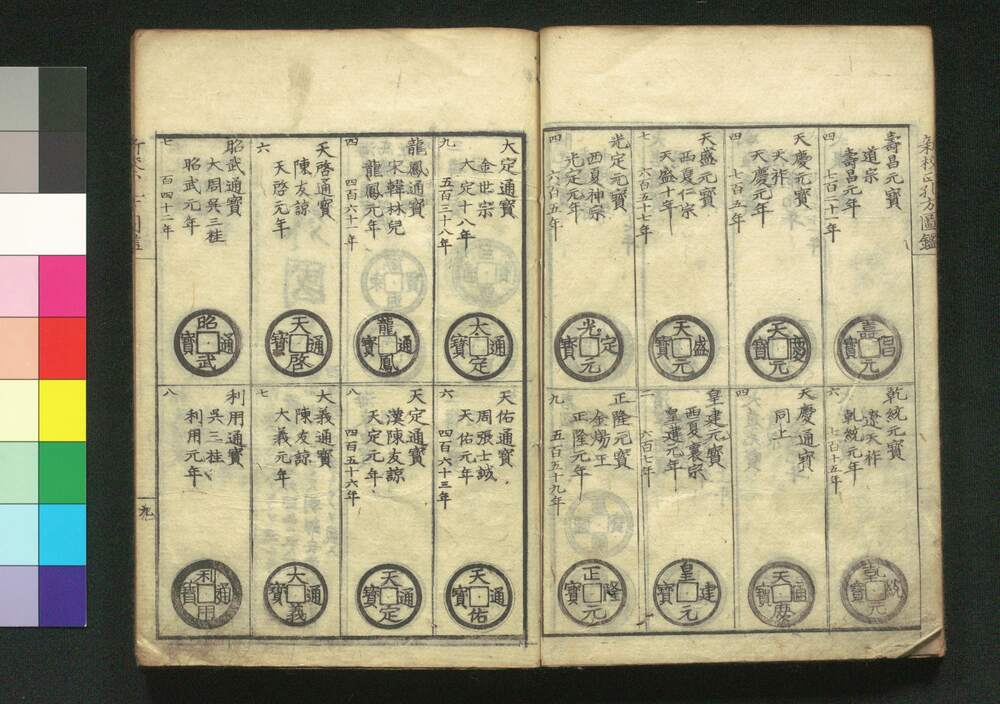 壽昌元寶
道宗
壽昌元年
七百二十一年
四
壽昌元寶
天慶元寶
天祚
天慶元年
七百五年
四
天慶元寶
天盛元寶
西夏仁宗
天盛十年
六百五十七年
七
天盛元寶
光定元寶
西夏神宗
光定元年
六百五年
四
光定元寶
乾統元寶
遼天祚
乾統元年
七百十五年
六
乾統元寶
天慶通寶
同上
四
天慶通寶
皇建元寶
西夏襄宗
皇建元年
六百七年
一
皇建元寶
正隆元寶
金煬王
正隆元年
五百五十九年
九
正隆元寶
大定通寶
金世宗
大定十八年
五百三十八年
九
大定通寶
龍鳳通寶
宋韓林兒
龍鳳元年
四百六十一年
四
龍鳳通寶
天啓通寶
陳友諒
天啓元年
六
天啓通寶
昭武通寶
大周吳三桂
昭武元年
百四十二年
七
昭武通寶
天佑通寶
周張士誠
天佑元年
四百六十三年
六
天佑通寶
天定通寶
漢陳友諒
天定元年
四百五十六年
八
天定通寶
大義通寶
陳友諒
大義元年
七
大義通寶
利用通寶
吳三桂
利用元年
八
利用通寶
九